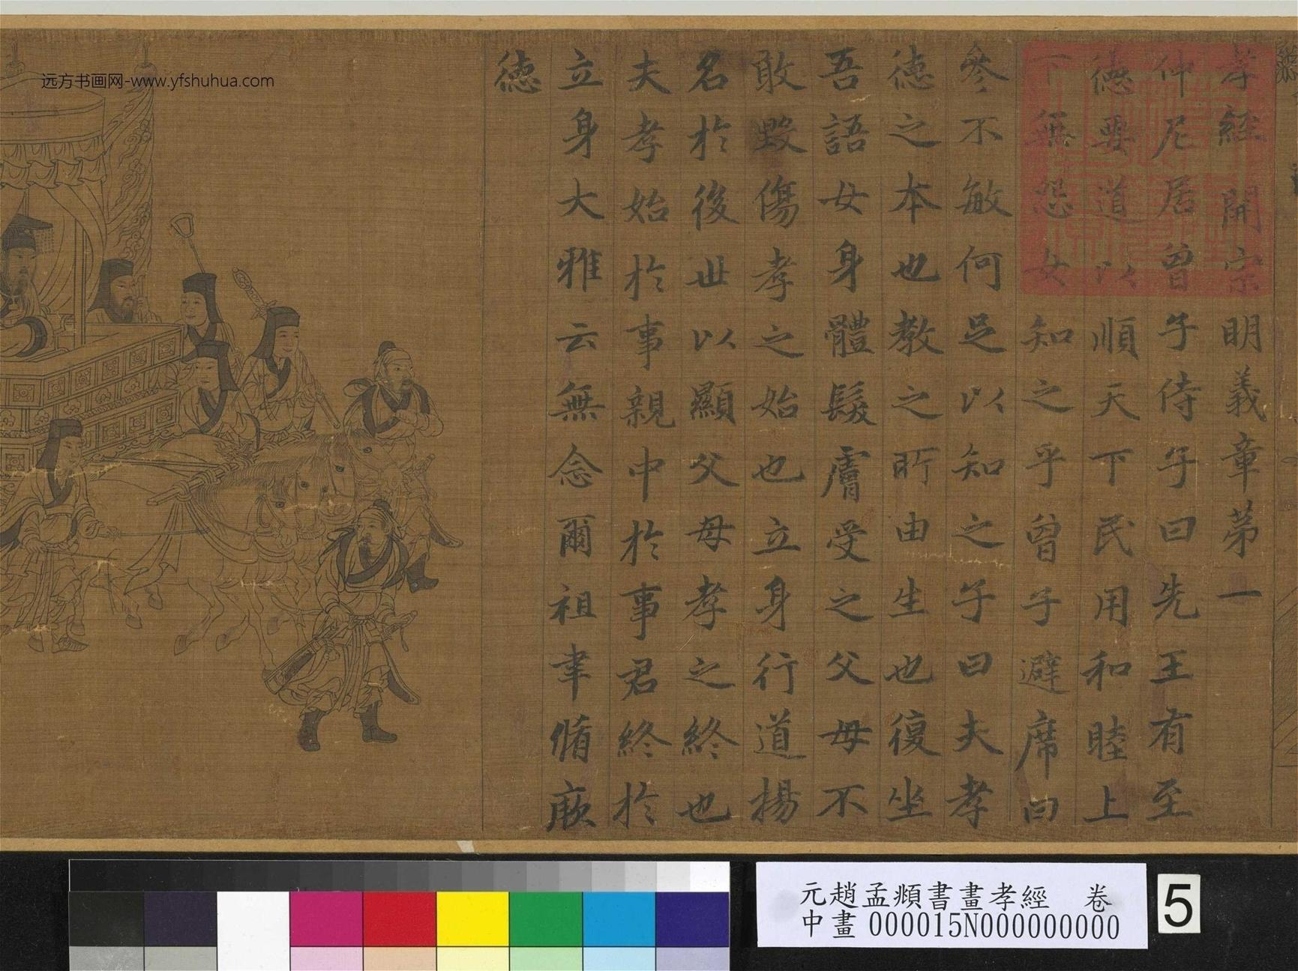 孝經 開宗明義章第一
仲尼居曾子侍子曰先王有至
德要道以順天下民用和睦上
下無怨女知之乎曾子避席曰
參不敏何足以知之子曰夫孝
德之本也教之所由生也復坐
吾語女身體髮膚受之父母不
敢毀傷孝之始也立身行道揚
名於後世以顯父母孝之終也
夫孝始於事親中於事君終於
立身大雅云無念爾祖聿脩厥
德
远方书画网-www.yfshuhua.com
元趙孟頫書畫孝經 卷
中畫000015N000000000
5